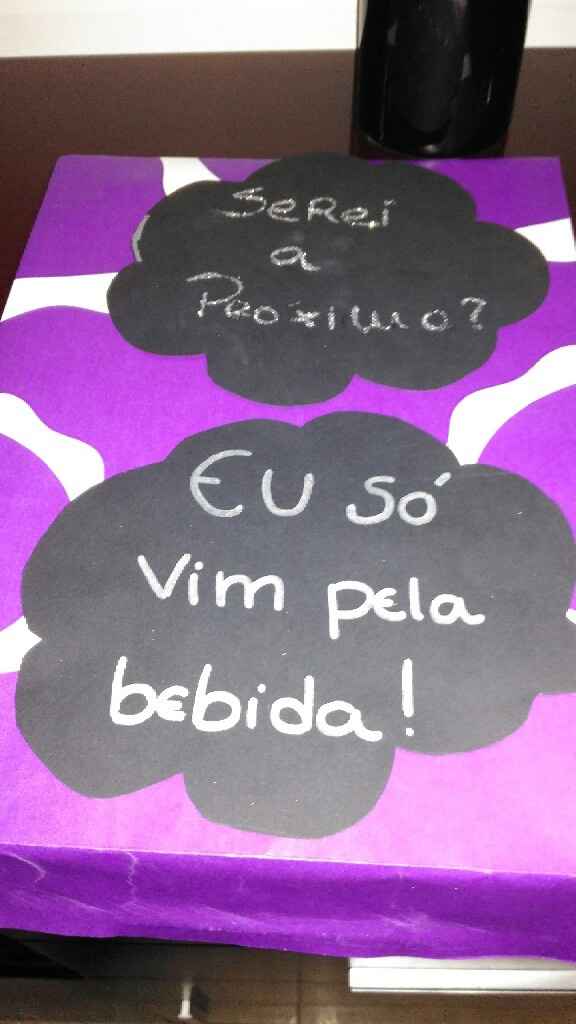 SeRei
a
PROXIMO?
EU SÓ
Vim pela
bebida!